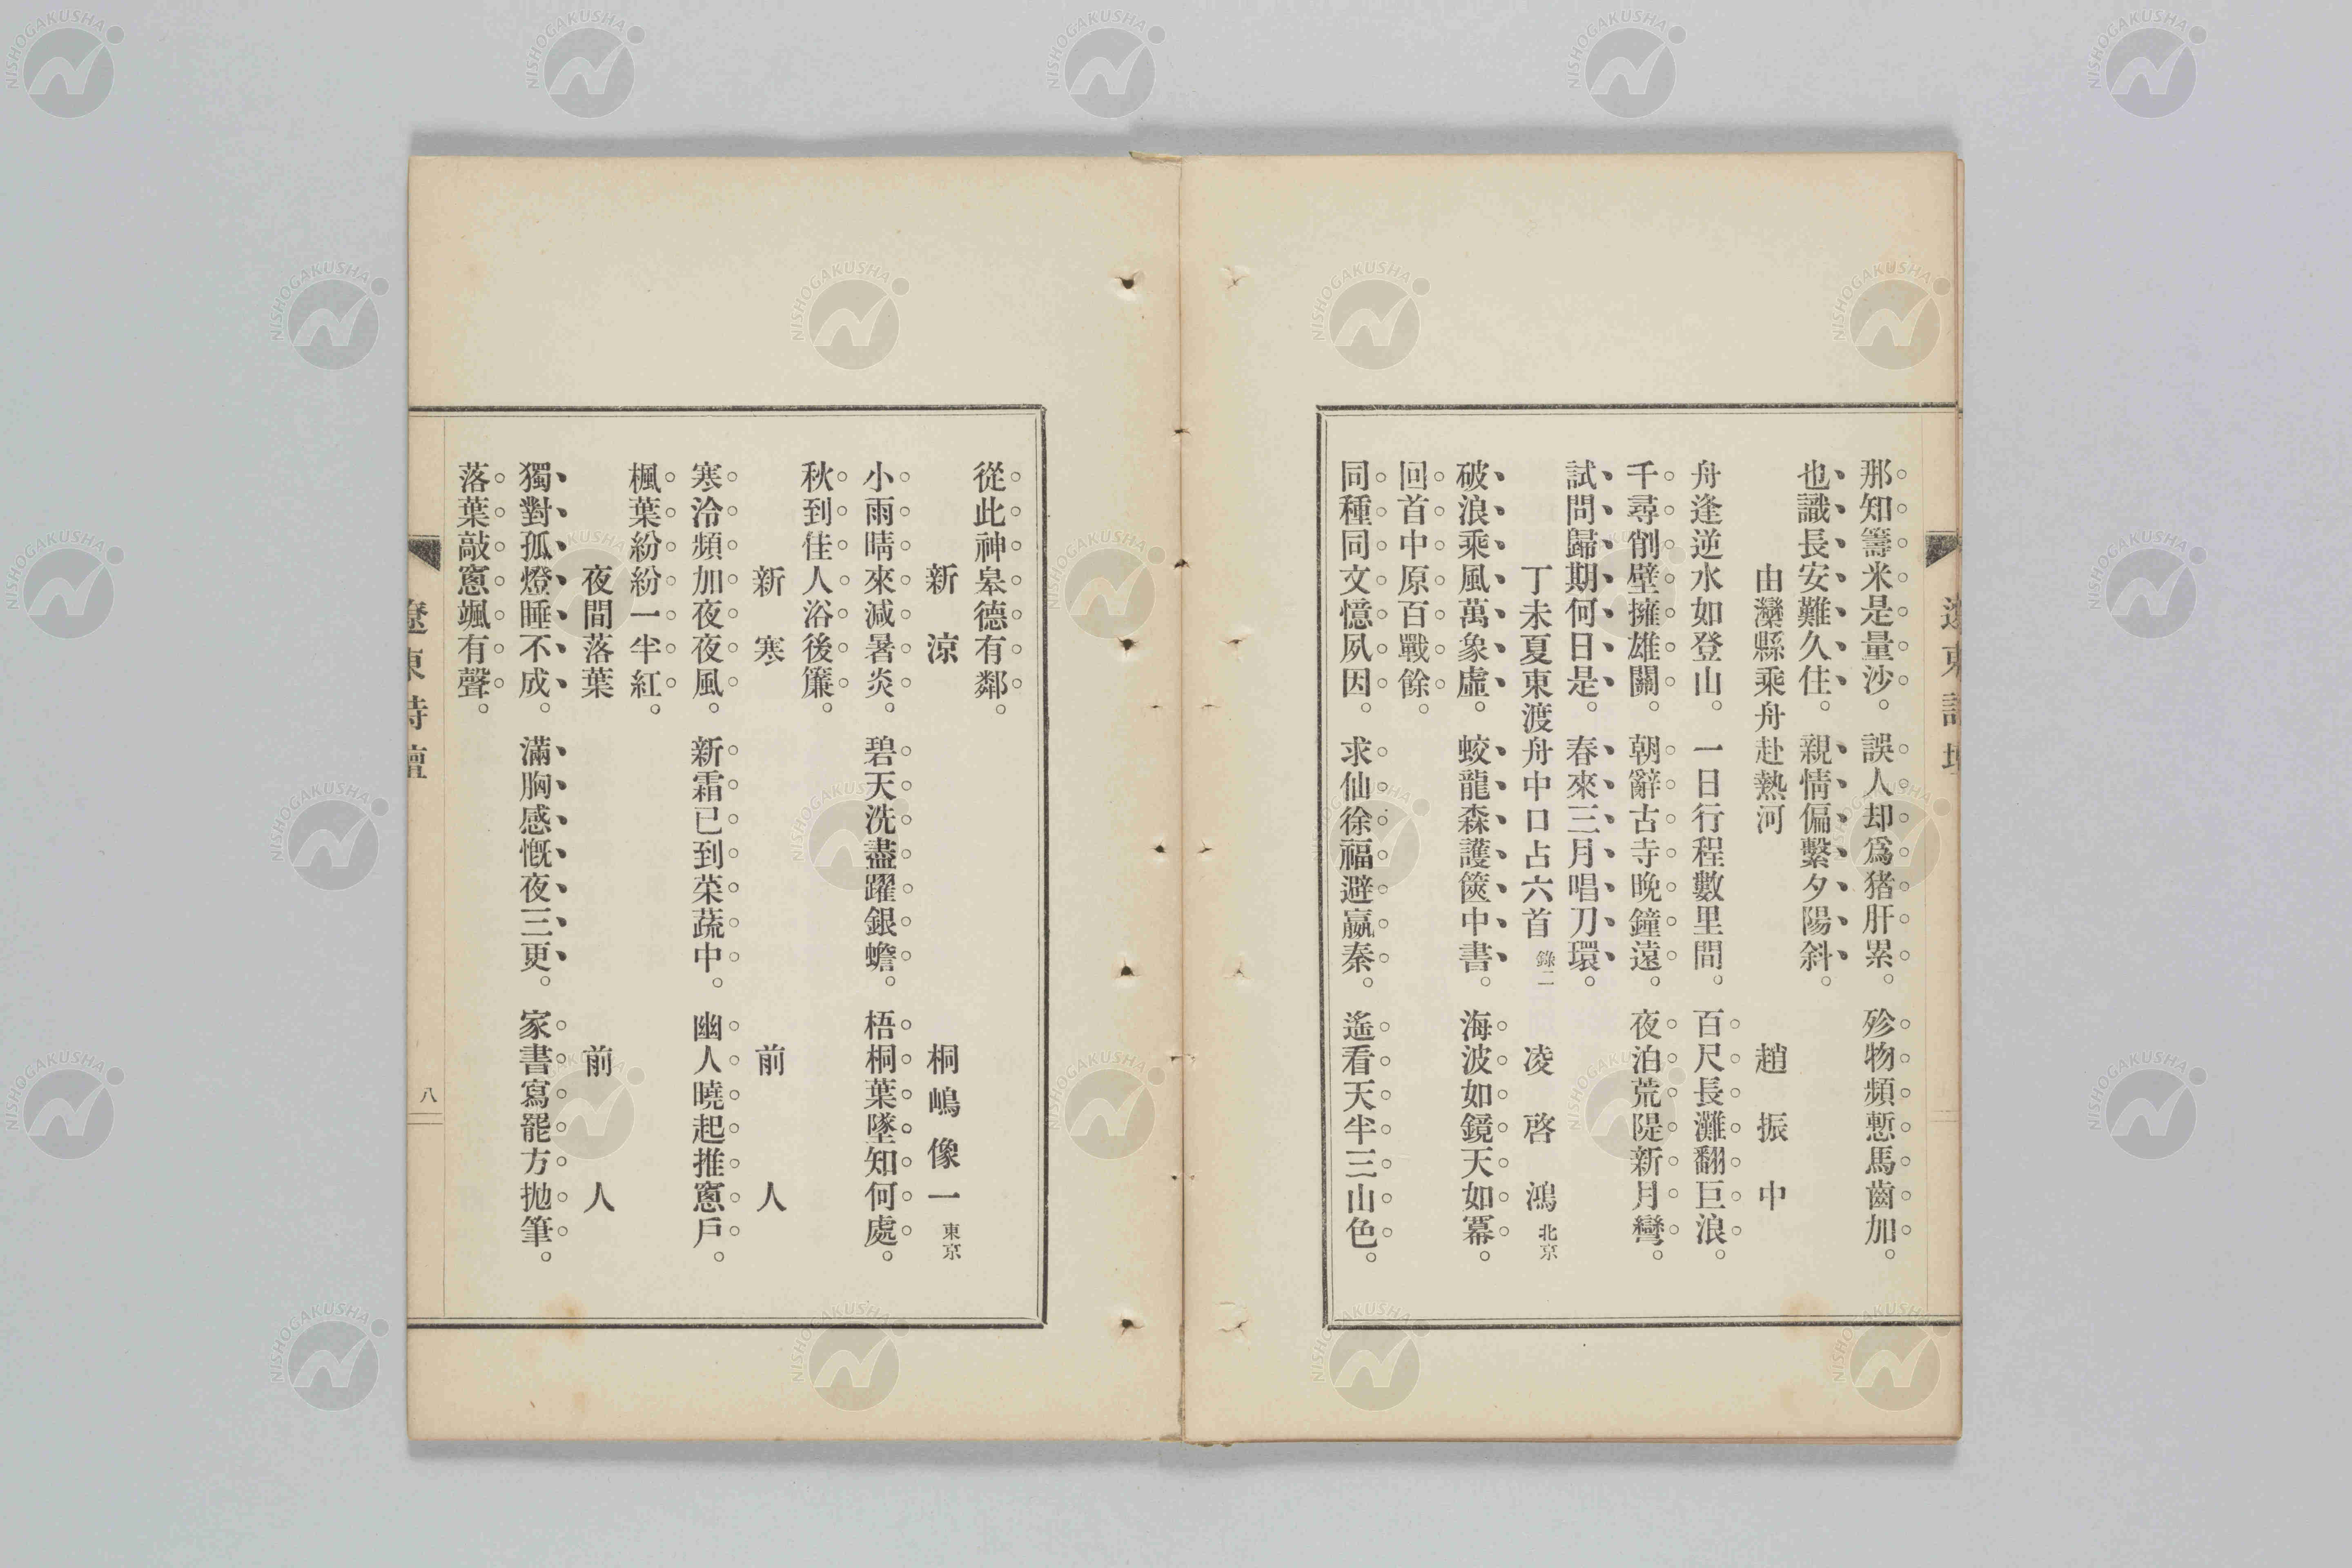 那知籌米是量沙。誤人却爲猪肝累。殄物頻慙馬齒加。
也識長安難久住。親情偏繫夕陽斜。
由灤縣乘舟赴熱河 趙振中
舟逢逆水如登山。一日行程數里間。百尺長灘翻巨浪。
千尋削壁擁雄關。朝辭古寺晚鐘遠。夜泊荒隄新月彎。
試問歸期何日是。春來三月唱刀環。
丁未夏東渡舟中口占六首 錄二 凌啓鴻 北京
破浪乘風萬象虛。蛟龍森護篋中書。海波如鏡天如冪。
回首中原百戰餘。
同種同文憶夙因。求仙徐福避嬴秦。遙看天半三山色。
從此神皋德有鄰。
新涼 桐嶋像一 東京
小雨晴來減暑炎。碧天洗盡躍銀蟾。梧桐葉墜知何處。
秋到佳人浴後簾。
新寒 前人
寒泠頻加夜夜風。新霜已到菜蔬中。幽人曉起推窻戶。
楓葉紛紛一半紅。
夜間落葉 前人
獨對孤燈睡不成。滿胸感慨夜三更。家書寫罷方拋筆。
落葉敲窻颯有聲。
遼東詩壇
八
NISHOGAKUSHA